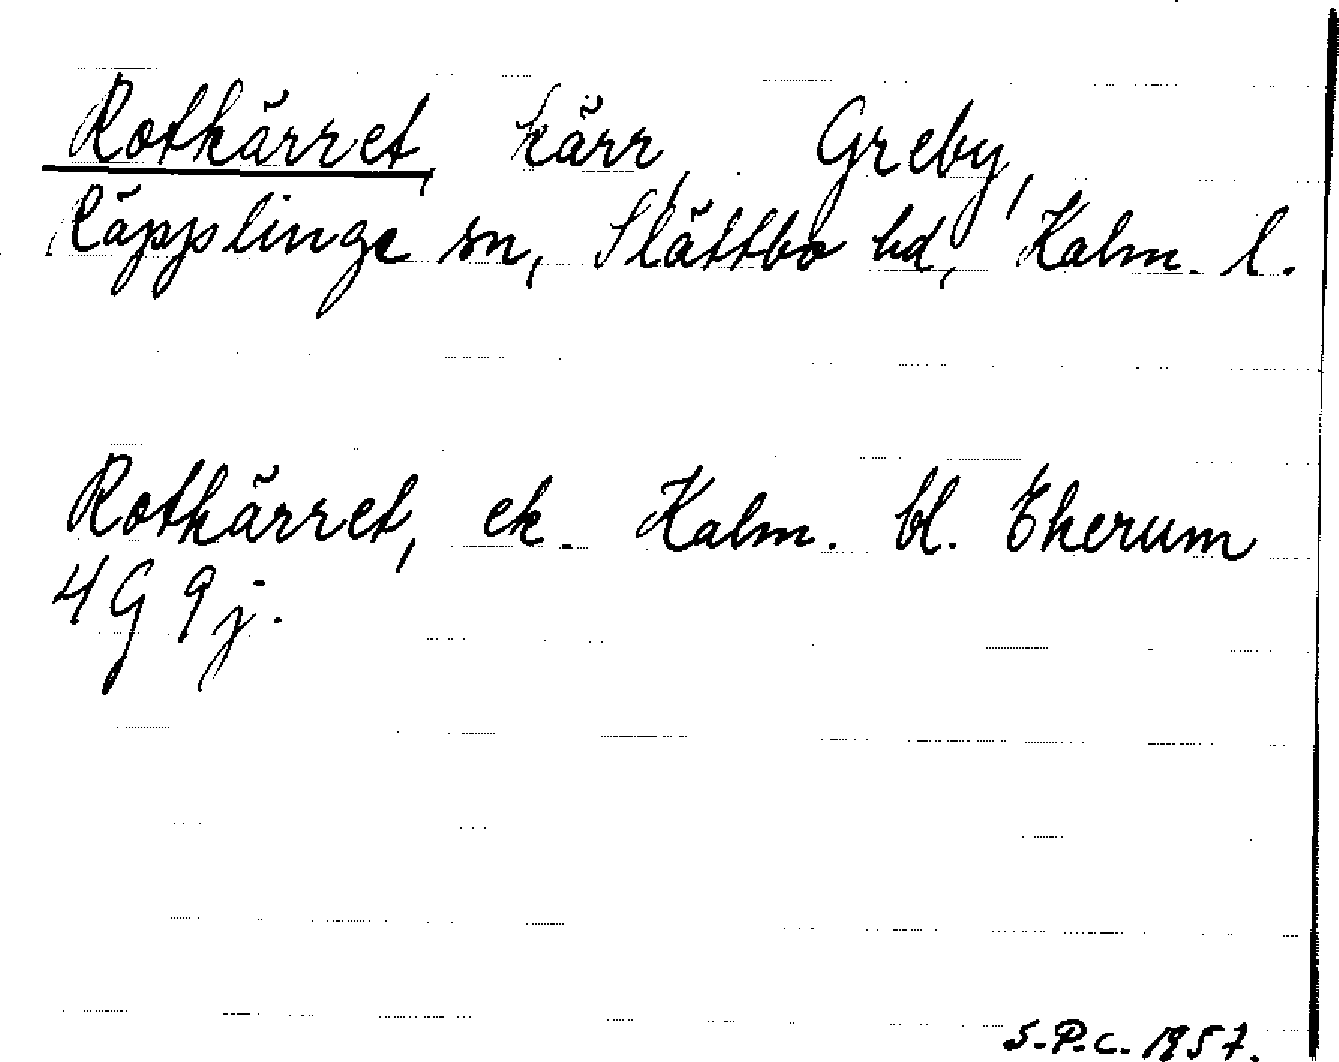 Rotkärret, kärr, Greby,
Köpplinge sn, Slättbo hd, Kalm. l.
Rotkärret, ek. Kalm. bl. Ekerum
4G 9j.
S.P.C. 1957.